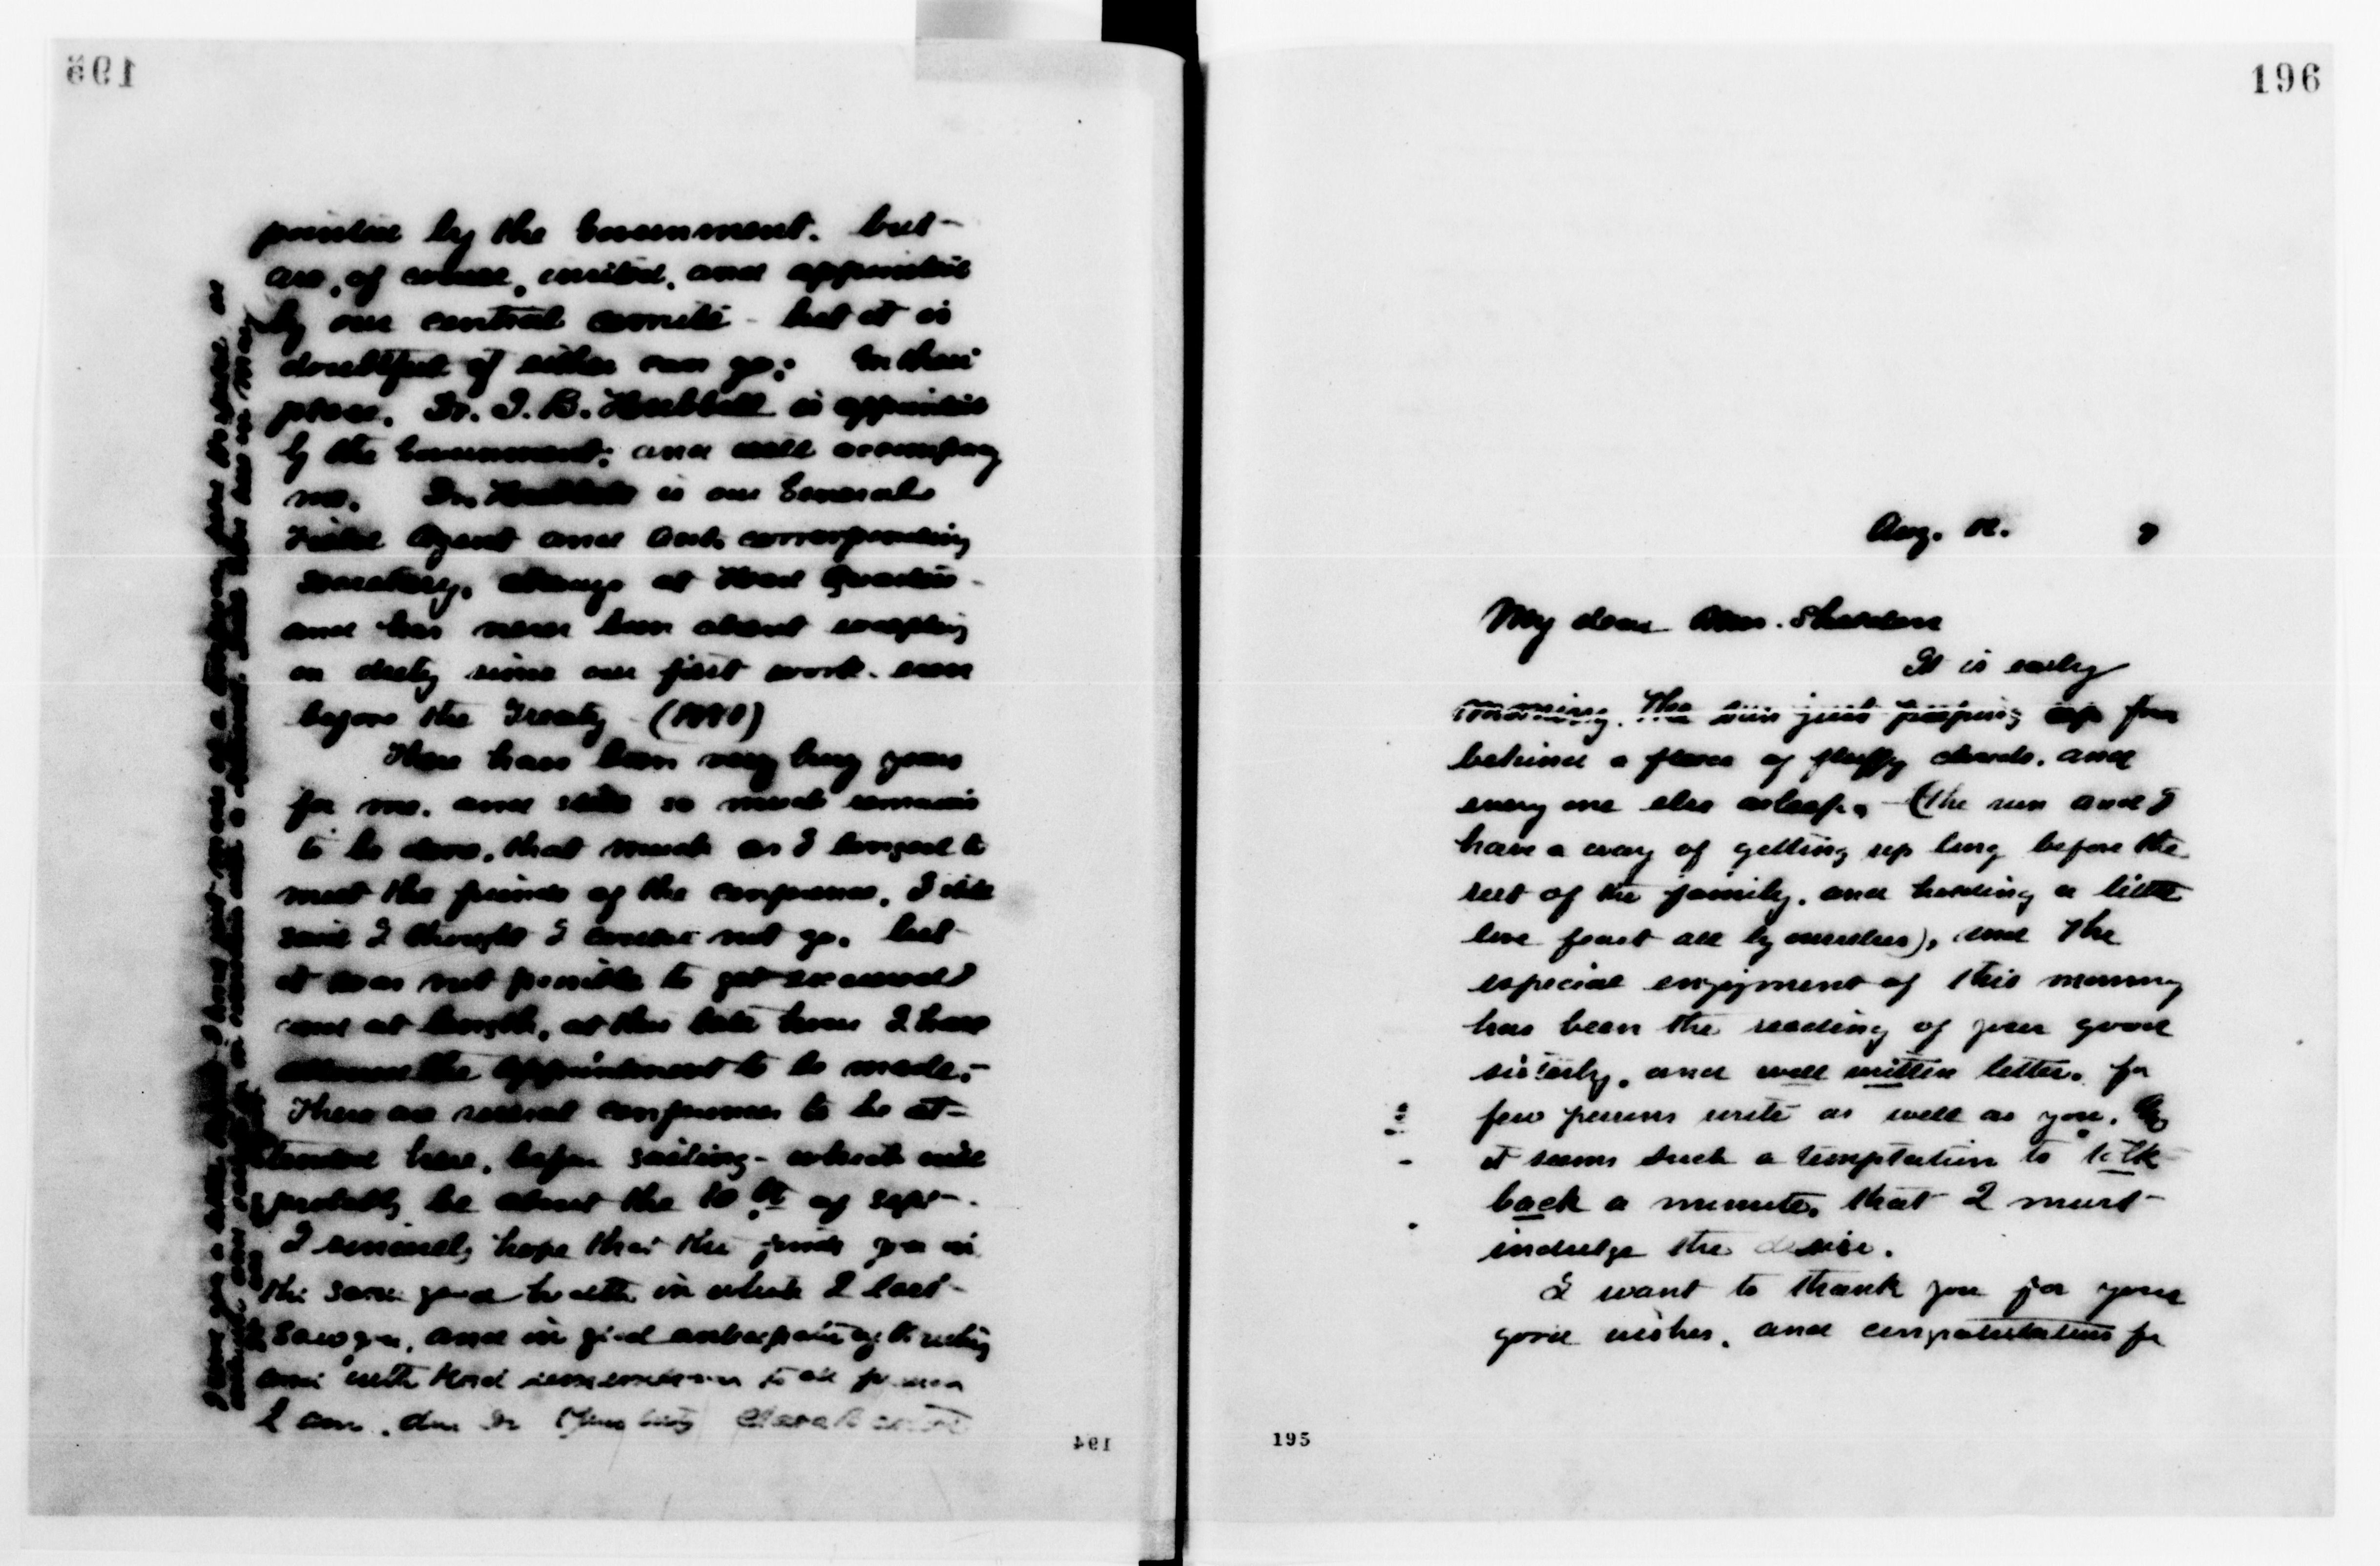 195
pointed by the Government. but
are, of course, invited, and appointed
by our central comité - but it is
doubtful if either can go; In their
place, Dr. J. B. Hubbell is appointed
by the Government; and will accompany
me. Dr. Hubbell is our General
Field Agent and
secretary, always at Head Quarters -
and has never been absent excepting
on duty since our first work. even
before the Treaty
These have been very busy years
for me. and still so much remains
to be done, that much as I longed to
meet the friends of the conference, I still
said I thought I could not go. but
it was not possible to get excused
and at length, at this late hour I have
the appointment to be made; -
There are several conferences to be at-
tended here, before sailing - which will
probably be about the 10th of Sept -.
I sincerely hope that this finds you in
the same good health in which I last
saw you, and in glad anticipation of meeting
and with kind to all
I am, dear Dr Clara Barton
194
196
Aug. 12. 7
My dear Mrs. Sheldon
It is early
morning. The sun just peeping up from
behind a fleece of fluffy clouds, and
every one else asleep, - (the sun and I
have a way of getting up long before the
rest of the family, and holding a little
love feast all by ourselves), and the
especial enjoyment of this morning
has been the reading of your good
sisterly, and well written letter. for
few persons write as well as you.
it seems such a temptation to talk
back a minute, that I must
indulge the desire.
I want to thank you for your
good wishes, and congratulations for
195